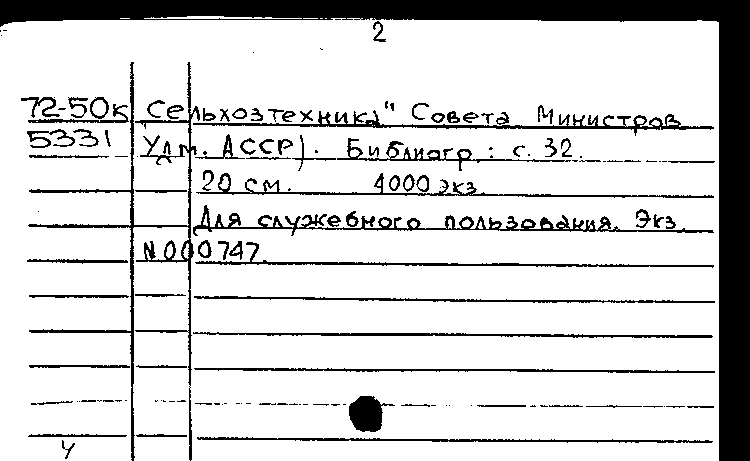 2
72-50к сельхозтехника" Совета Министров
5331 Удм. АССР). Библиогр.: с. 32.
20 см. 4000 экз.
Для служебного пользования. Экз.
N 000747.
4